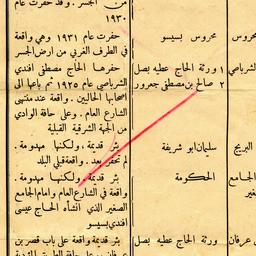 من الجسر . وقد حفرت عام
١٩٣٠
محروس محروس بسيسو حفرت عام ١٩٣١ وهي واقعة
في الطرف الغربي من ارض الجسر
الشرباصي ١ ورثة الحاج عطيه بصل حفرها الحاج مصطفى افندي
٢ صالح بن مصطفى جعرور الشرباصي عام ١٩٢٥ ثم باعها الى
اصحابها الحاليين . واقعة عند منتهى
الشارع العام . وعلى حافة الوادي
من الجهة الشرقية القبلية
البريج سليمان ابو شريفة بئر قديمة ، ولكنها مهدومة .
لم تحفر بعد . واقعة قبلي البلد
الجامع الحكومة بئر قديمة ، ولكنها مهدومة .
واقعة في الشارع العام وامام الجامع
الصغير الذي انشأه الحاج عيسى
افندي بسيسو
عرفان ورثة الحاج عطيه بصل بئر قديمة واقعة على باب قصر بن